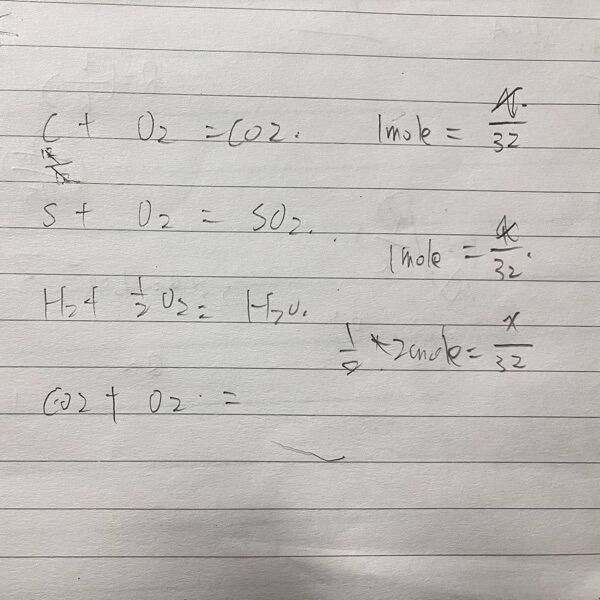 C + O2 = CO2. 1mole = X/32
12/12
S + O2 = SO2. 1mole = X/32.
H2 + 1/2 O2 = H2O. 1/2 * 2mole = x/32
CO2 + O2 =